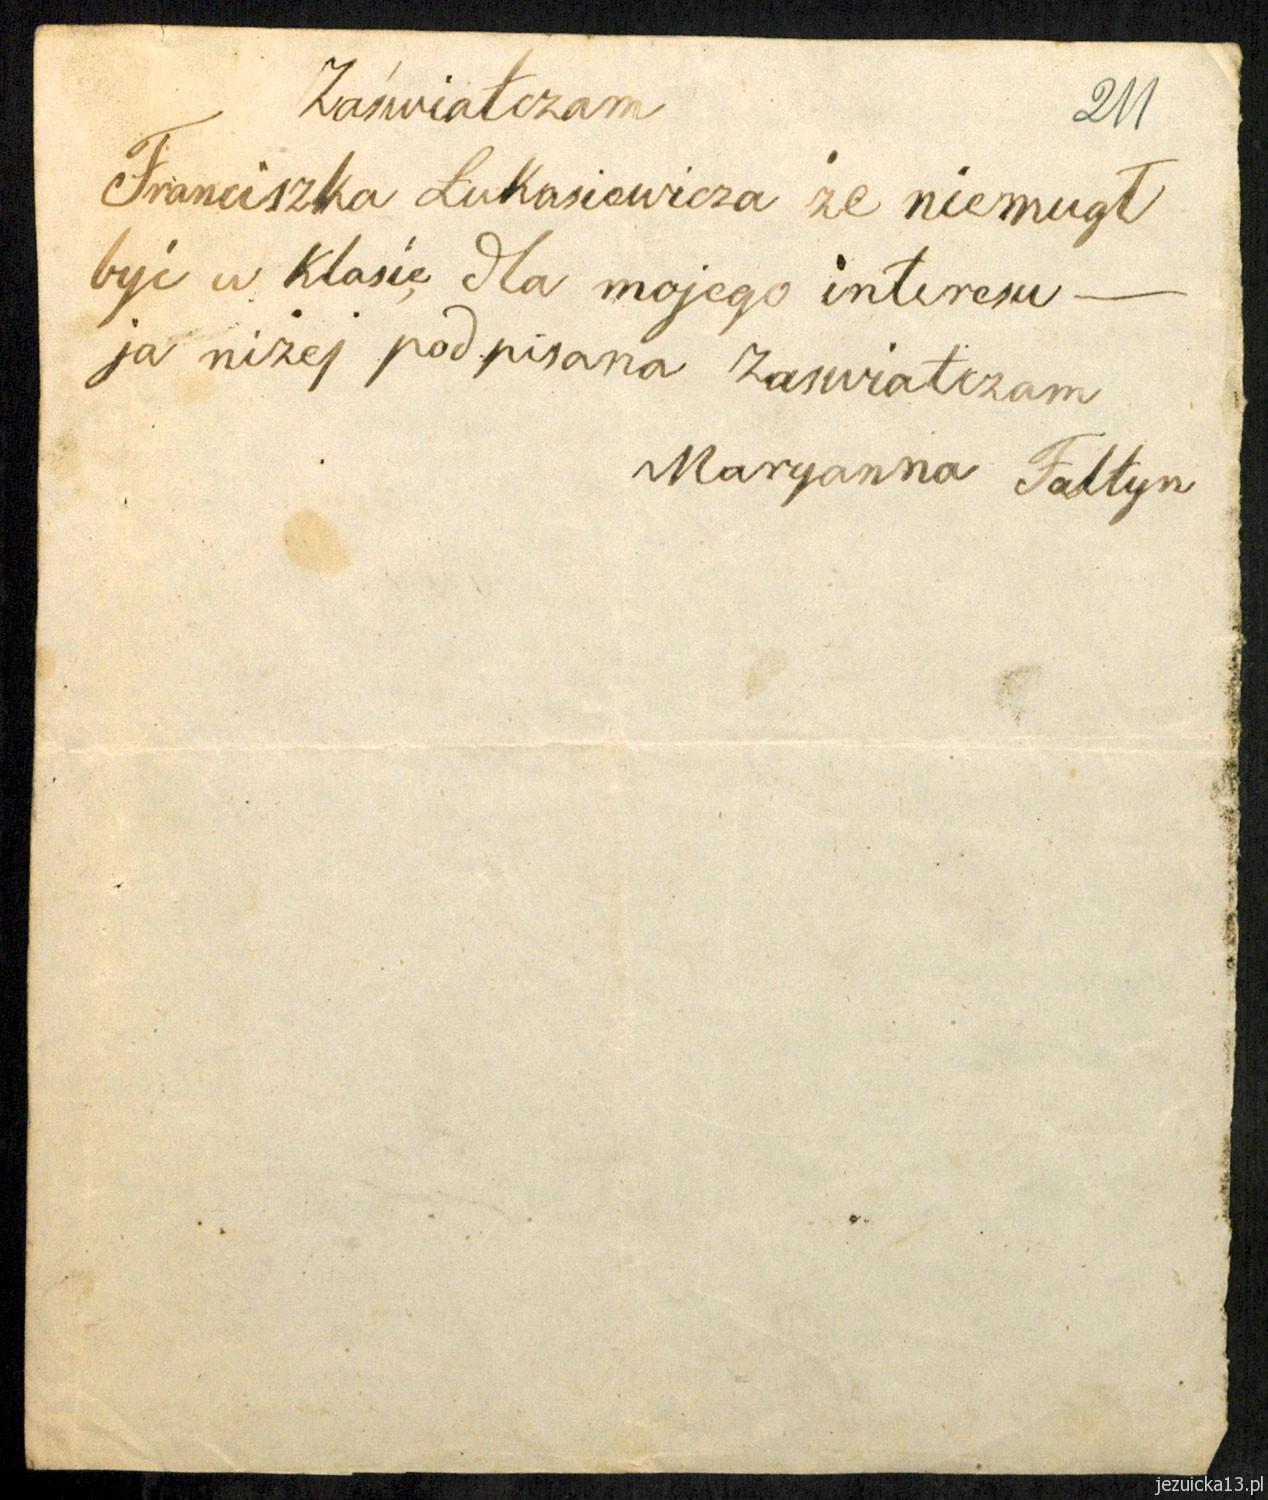 Zaświatczam
211
Franciszka Łukasiewicza że niemugł
być w klasię dla mojego interesu —
ja niżej podpisana Zaswiatczam
Maryanna Faltyn
jezuicka13.pl